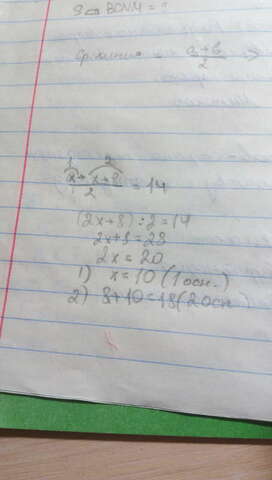 S BCNM = ?
Ср. линия = (a+b)/2 =>
1 2
(x + x+8)/2 = 14
(2x+8) : 2 = 14
2x+8 = 28
2x = 20
1) x = 10 (1 осн.)
2) 8+10 = 18 (2 осн)